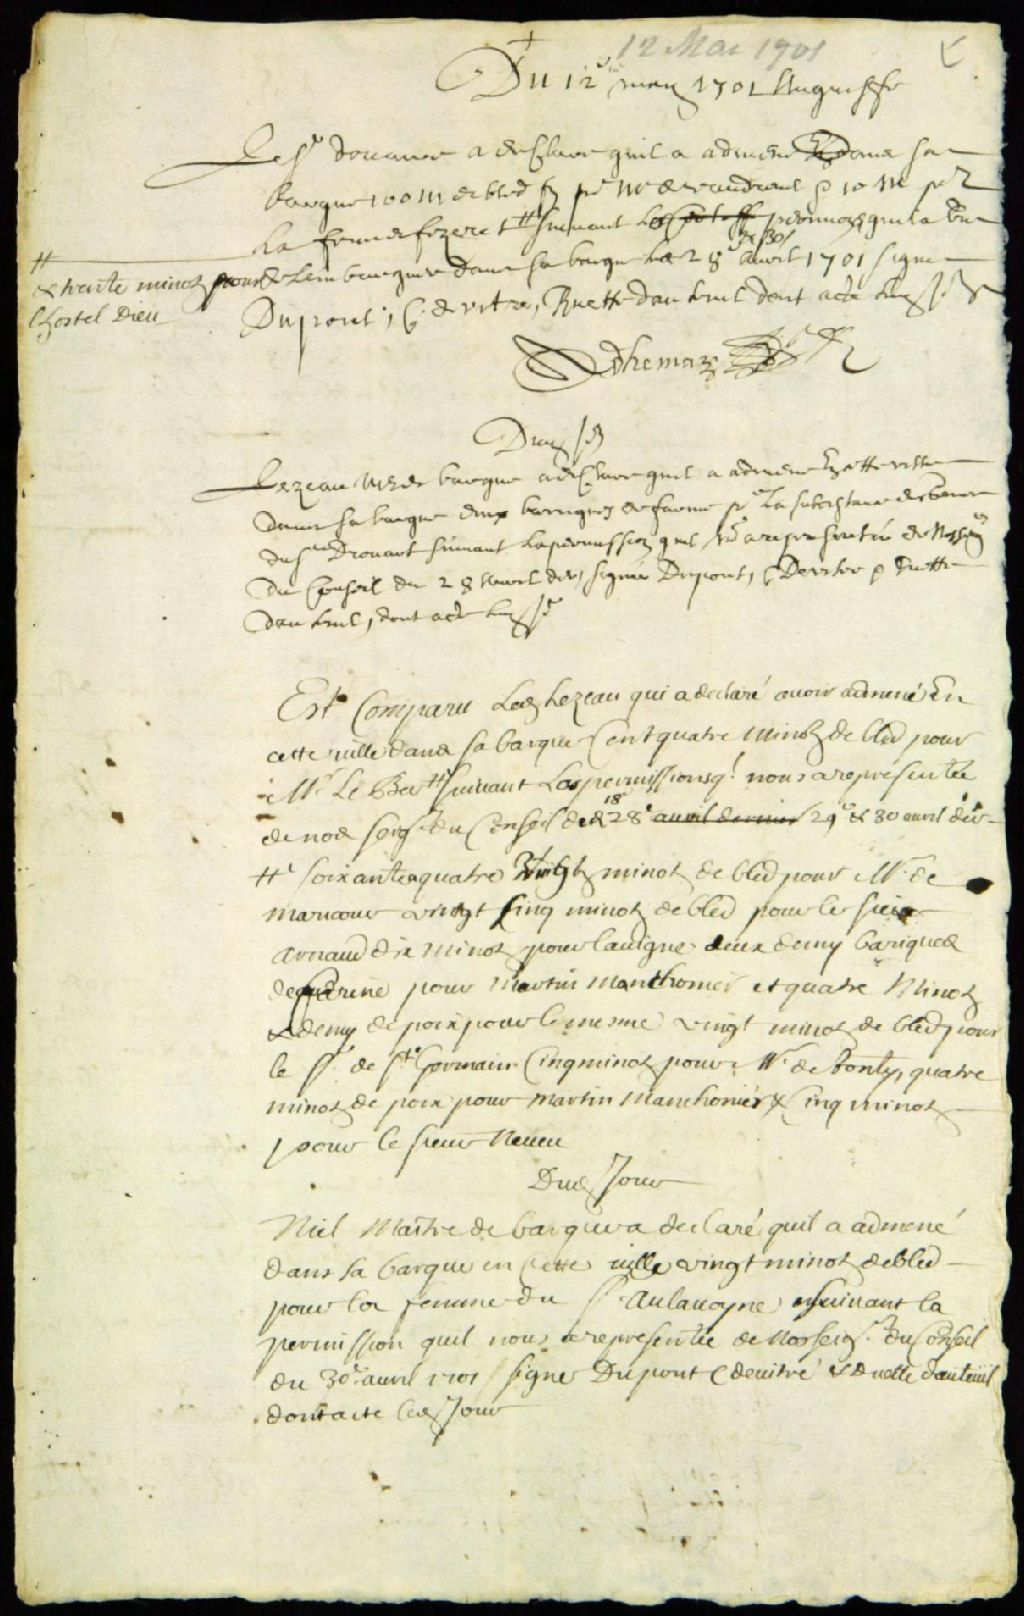 12 Mai 1701
Du 12e may 1701 au greffe
Le Sr a declare quil a admené dans sa
barque 100 M de bled pr Mr de Vaudreuil & 10 M pr
la femme suivant les permissions quil a
et 30e
de lembarquer dans sa barque le 28e Avril 1701 signé
# & trente minotz pour
lhostel Dieu
Dupont, C. de vitré, Ruette dauteuil dont acte
Adhemar
Dud. jo
Lezeau Mre de barque a declaré quil a admené en cette ville
dans sa barque deux barriques de farine pr la subsistance
du Sr suivant la permission quil nous a representée de Nosseigrs
du Conseil du 28 avril der, signée Dupont, C Devitre & Ruette
dauteuil, dont acte
Est Comparu Led Lezeau qui a declaré avoir admené En
cette ville dans sa barque Cent quatre Minotz de bled pour
Mr Le Ber # suivant Les permissions q.l nous a representée
de nos seigrs du Conseil des 18e 28e avril dernier 29e & 30 avril der
# soixante quatre minotz de bled pour Mr de
maricour vingt Cinq minotz de bled pour le sieur
arnaud dix Minotz pour lavigne deux demy bariques
de farine pour Martin Manthonier et quatre Minotz
& demy de poix pour le mesme vingt minotz de bled pour
le Sr de St Germain Cinq minotz pour Mr de Tonty, quatre
minotz de poix pour Martin Manthonier & Cinq minotz
pour le sieur Neveu
Dud Jour
Niel Maitre de barque a declaré quil a admené
dans sa barque en Cette ville vingt minotz de bled
pour la femme du Sr Aulavoyne suivant la
permission quil nous a representée de Nosseigrs du Conseil
du 30e avril 1701 signé Dupont C devitré & Ruette dauteuil
dont acte led Jour